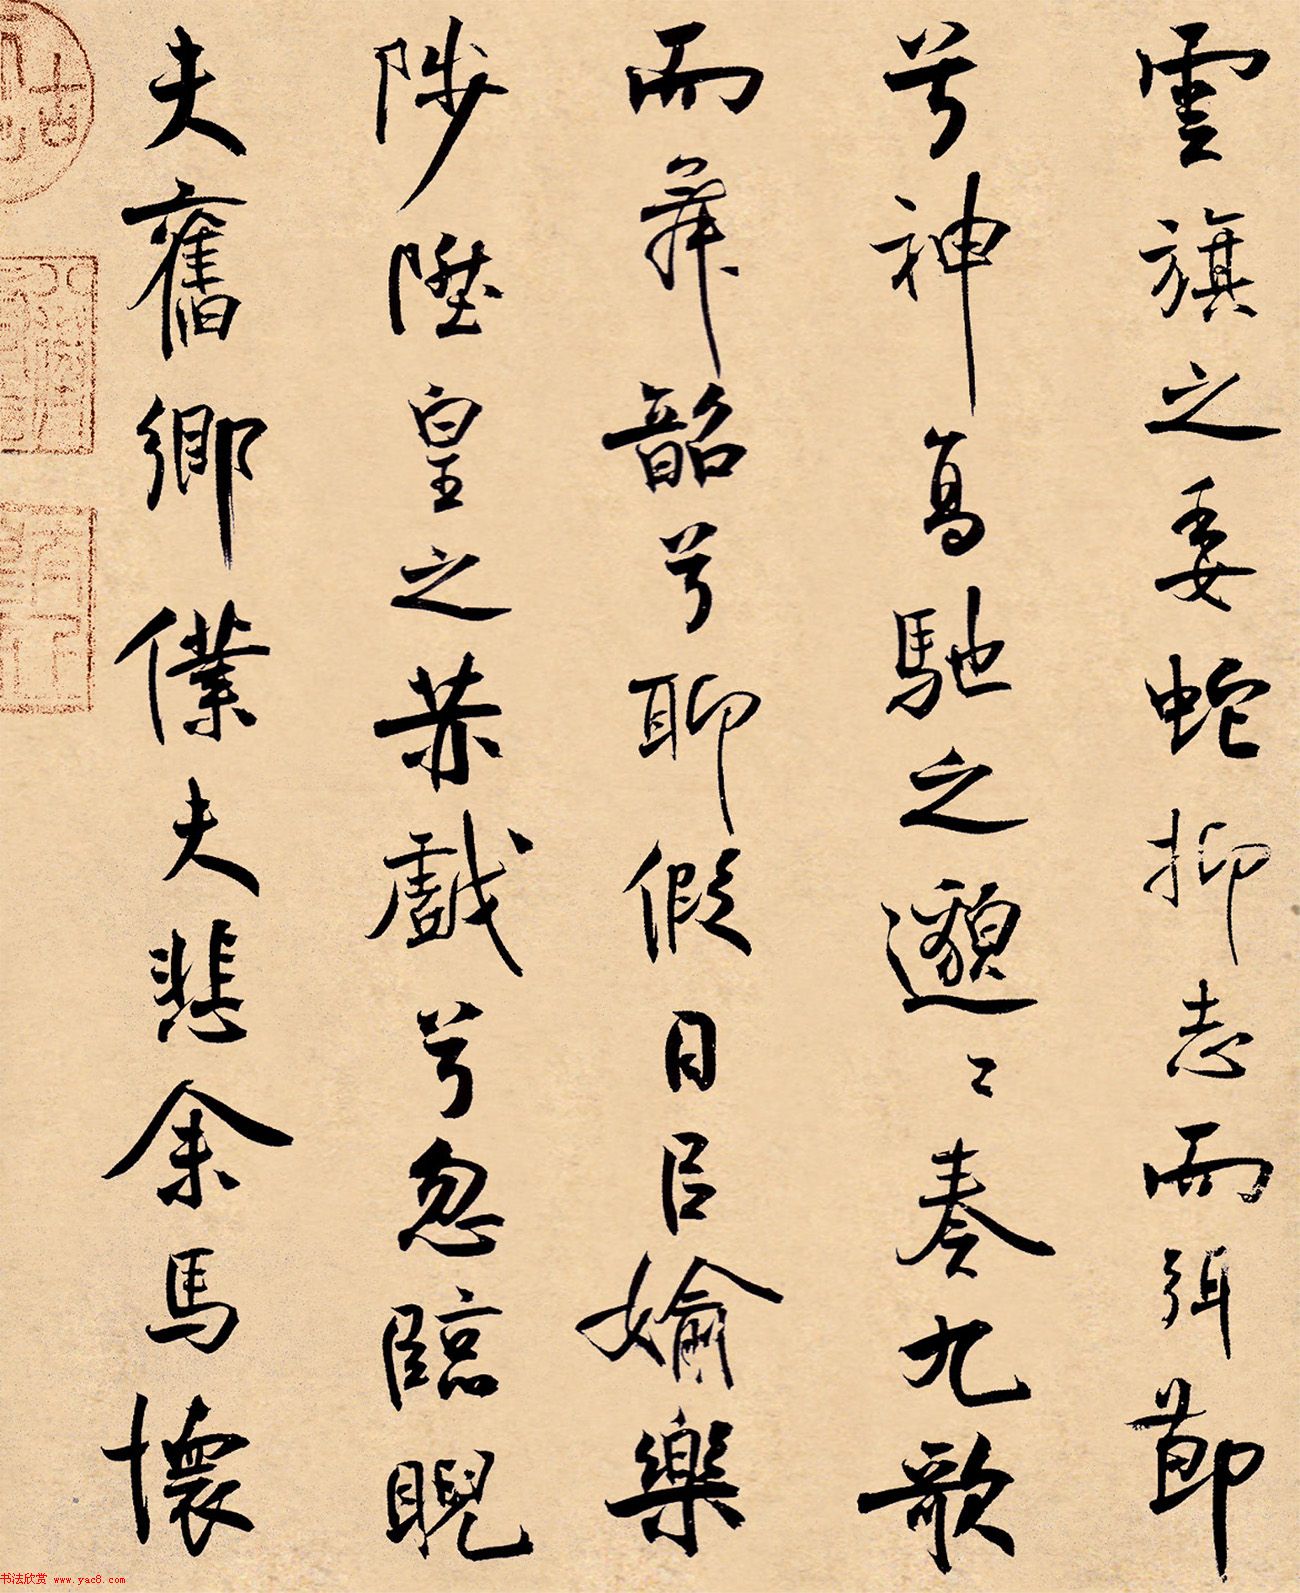 雲旗之委蛇抑志而弭節
兮神高馳之邈〻奏九歌
而舞韶兮聊假日以媮樂
陟陞皇之赫戲兮忽臨睨
夫舊鄉僕夫悲余馬懷
书法欣赏 www.yac8.com